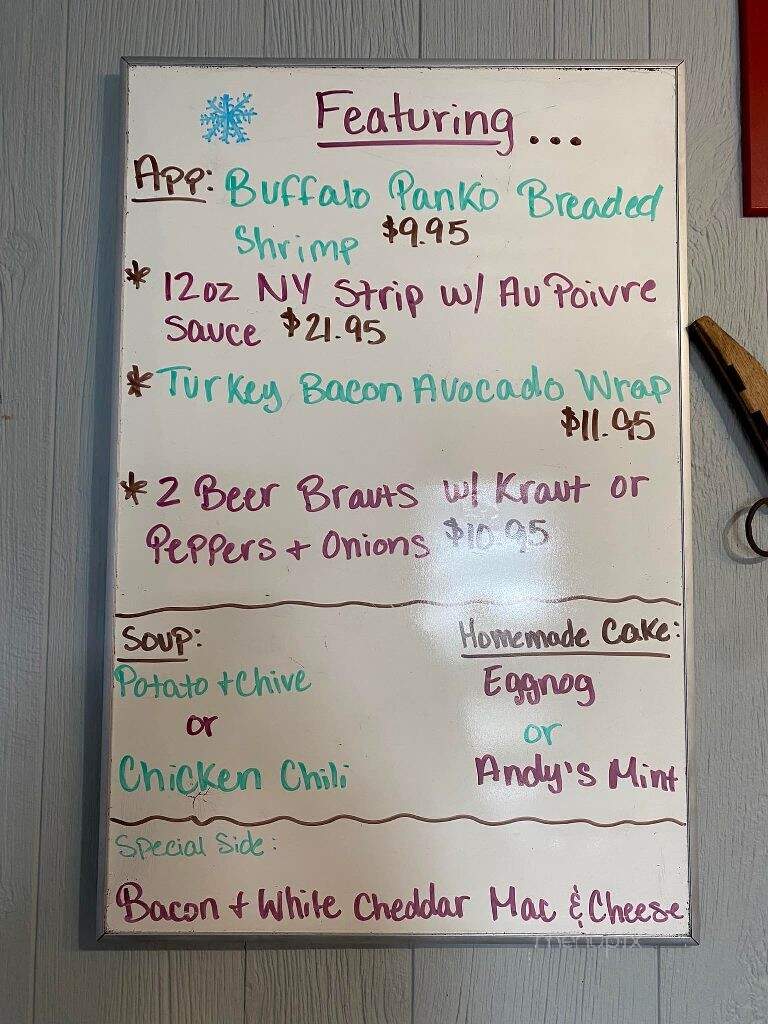 Featuring...
App: Buffalo Panko Breaded
Shrimp $9.95
* 12oz NY Strip w/ Au Poivre
Sauce $21.95
* Turkey Bacon Avocado Wrap
$11.95
* 2 Beer Brauts w/ Kraut or
Peppers + Onions $10.95
Soup:
Potato + Chive
or
Chicken Chili
Homemade Cake:
Eggnog
or
Andy's Mint
Special Side:
Bacon + White Cheddar Mac & Cheese
menupix